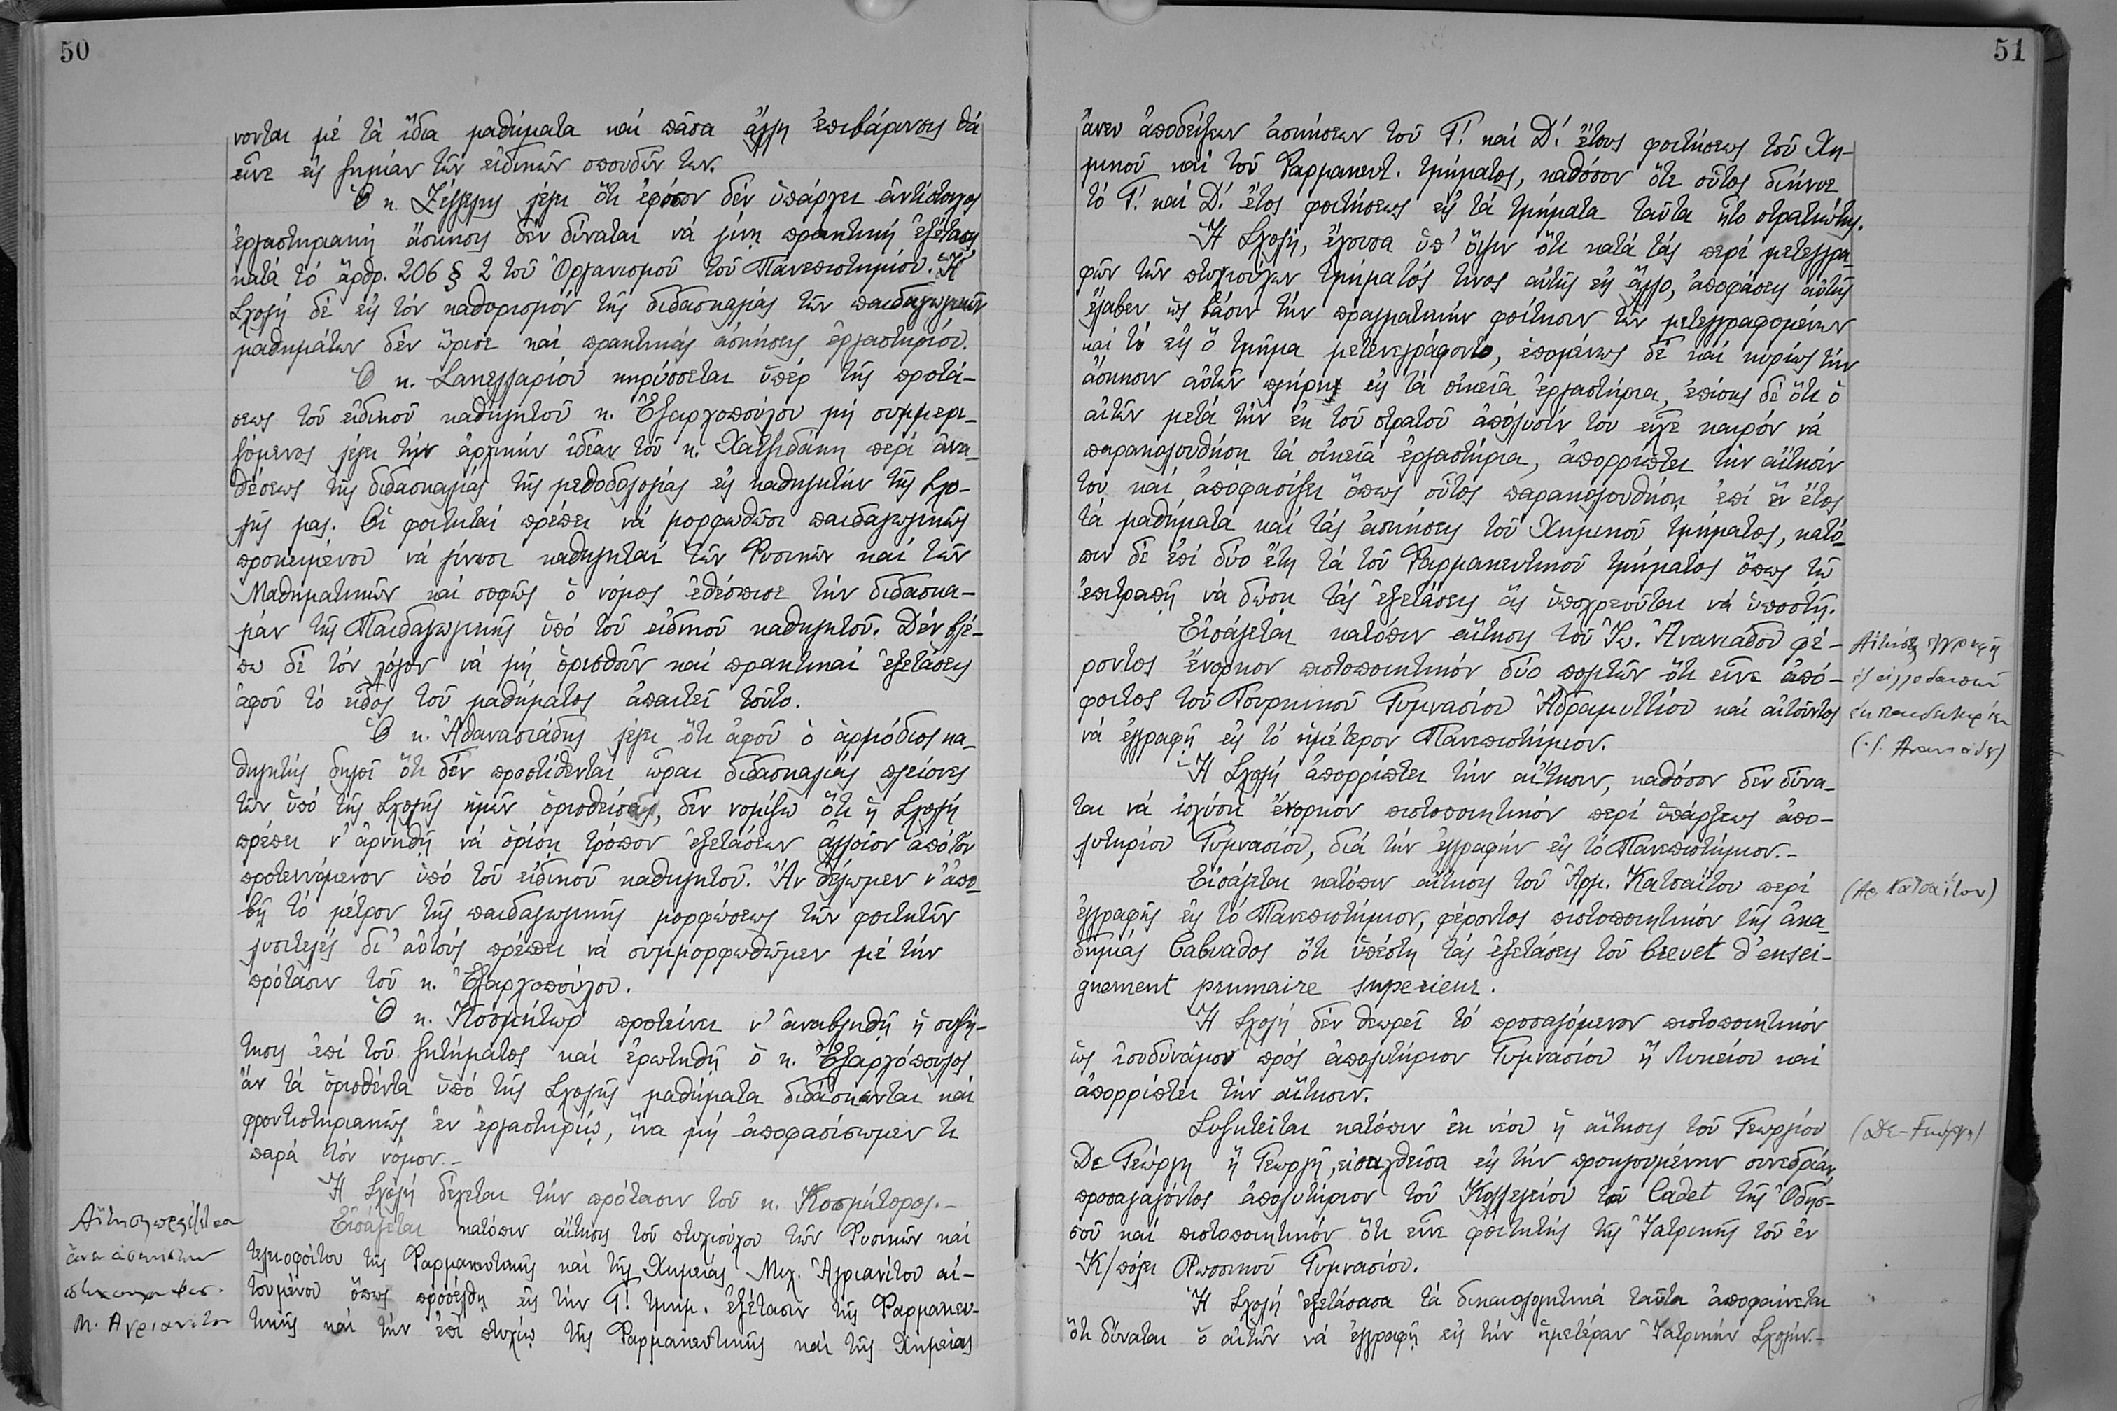 50
νονται μέ τά ἴδια μαθήματα καί πᾶσα ἄλλη ἐπιβάρυνσις θά
εἶνε εἰς ζημίαν τῶν εἰδικῶν σπουδῶν των.
Ὁ κ. Ζέγγελης λέγει ὅτι ἐφόσον δέν ὑπάρχει ἀντίστοιχος
ἐργαστηριακή ἄσκησις δέν δύναται νά γίνῃ πρακτική ἐξέτασις
κατά τό ἄρθρ. 206 § 2 τοῦ Ὀργανισμοῦ τοῦ Πανεπιστημίου. Ἡ
Σχολή δέ εἰς τόν καθορισμόν τῆς διδασκαλίας τῶν παιδαγωγικῶν
μαθημάτων δέν ὥρισε καί πρακτικάς ἀσκήσεις ἐργαστηρίου.
Ὁ κ. Σακελλαρίου κηρύσσεται ὑπέρ τῆς προτά-
σεως τοῦ εἰδικοῦ καθηγητοῦ κ. Ἐξαρχοπούλου μή συμμερι-
ζόμενος λέγει τήν ἀρχικήν ἰδέαν τοῦ κ. Χατζιδάκη περί ἀνα-
θέσεως τῆς διδασκαλίας τῆς μεθοδολογίας εἰς καθηγητήν τῆς Σχο-
λῆς μας. Οἱ φοιτηταί πρέπει νά μορφωθῶσι παιδαγωγικῶς
προκειμένου νά γίνωσι καθηγηταί τῶν Φυσικῶν καί τῶν
Μαθηματικῶν καί σοφῶς ὁ νόμος ἐθέσπισε τήν διδασκα-
λίαν τῆς Παιδαγωγικῆς ὑπό τοῦ εἰδικοῦ καθηγητοῦ. Δέν βλέ-
πω δέ τόν λόγον νά μή ὁρισθοῦν καί πρακτικαί ἐξετάσεις
ἀφοῦ τό εἶδος τοῦ μαθήματος ἀπαιτεῖ τοῦτο.
Ὁ κ. Ἀθανασιάδης λέγει ὅτι ἀφοῦ ὁ ἁρμόδιος κα-
θηγητής δηλοῖ ὅτι δέν προστίθενται ὧραι διδασκαλίας πλείονες
τῶν ὑπό τῆς Σχολῆς ἡμῶν ὁρισθείσας, δέν νομίζω ὅτι ἡ Σχολή
πρέπει ν' ἀρνηθῇ νά ὁρίσῃ τρόπον ἐξετάσεων ἀλλοῖον ἀπό τόν
προτεινόμενον ὑπό τοῦ εἰδικοῦ καθηγητοῦ. Ἄν θέλωμεν ν' ἀπο-
βῇ τό μέτρον τῆς παιδαγωγικῆς μορφώσεως τῶν φοιτητῶν
λυσιτελές δι' αὐτούς πρέπει νά συμμορφωθῶμεν μέ τήν
πρότασιν τοῦ κ. Ἐξαρχοπούλου.
Ὁ κ. Κοσμήτωρ προτείνει ν' ἀναβληθῇ ἡ συζή-
τησις ἐπί τοῦ ζητήματος καί ἐρωτηθῇ ὁ κ. Ἐξαρχόπουλος
ἄν τά ὁρισθέντα ὑπό τῆς Σχολῆς μαθήματα διδάσκονται καί
φροντιστηριακῶς ἐν ἐργαστηρίῳ, ἵνα μή ἀποφασίσωμεν τι
παρά τόν νόμον.-
Ἡ Σχολή δέχεται τήν πρότασιν τοῦ κ. Κοσμήτορος.-
Εἰσάγεται κατόπιν αἴτησις τοῦ πτυχιούχου τῶν Φυσικῶν καί
τελειοφοίτου τῆς Φαρμακευτικῆς καί τῆς Χημείας Μιχ. Ἀγριανίτου αἰ-
τουμένου ὅπως προσέλθῃ εἰς τήν Γ! τμημ. ἐξέτασιν τῆς Φαρμακευ-
τικῆς καί τήν ἐπί πτυχίῳ τῆς Φαρμακευτικῆς καί τῆς Χημείας
ἄνευ ἀσκήσεων
Μ. Αγριανιτου
51
ἄνευ ἀποδείξεων ἀσκήσεων τοῦ Γ! καί Δ! ἔτους φοιτήσεως τοῦ Χη-
μικοῦ καί τοῦ Φαρμακευτ. τμήματος, καθόσον ὅτε οὗτος διήνυε
τό Γ! καί Δ! ἔτος φοιτήσεως εἰς τά τμήματα ταῦτα ἦτο στρατιώτης.
Ἡ Σχολή, ἔχουσα ὑπ' ὄψιν ὅτι κατά τάς περί μετεγγρα
φῶν τῶν πτυχιούχων τμήματός τινος αὐτῆς εἰς ἄλλο, ἀποφάσεις αὐτῆς
ἔλαβεν ὡς βάσιν τήν πραγματικήν φοίτησιν τῶν μετεγγραφομένων
καί τό εἰς ὅ τμῆμα μετενεγράφοντο, ἑπομένως δέ καί κυρίως τήν
ἄσκησιν αὐτῶν πλήρη εἰς τά οἰκεῖα ἐργαστήρια, ἐπίσης δέ ὅτι ὁ
αἰτῶν μετά τήν ἐκ τοῦ στρατοῦ ἀπόλυσίν του εἶχε καιρόν νά
παρακολουθήσῃ τά οἰκεῖα ἐργαστήρια, ἀπορρίπτει τήν αἴτησίν
του καί ἀποφασίζει ὅπως οὗτος παρακολουθήσῃ ἐπί ἕν ἔτος
τά μαθήματα καί τάς ἀσκήσεις τοῦ Χημικοῦ τμήματος, κατό-
πιν δέ ἐπί δύο ἔτη τά τοῦ Φαρμακευτικοῦ τμήματος ὅπως τῷ
ἐπιτραπῇ νά δώσῃ τάς ἐξετάσεις ἅς ὑποχρεοῦται νά ὑποστῇ.
Εἰσάγεται κατόπιν αἴτησις τοῦ Ἰω. Ἀνανιάδου φέ-
ροντος ἔνορκον πιστοποιητικόν δύο πολιτῶν ὅτι εἶνε ἀπό-
φοιτος τοῦ Τουρκικοῦ Γυμνασίου Ἀδραμυττίου καί αἰτοῦντος
νά ἐγγραφῇ εἰς τό ἡμέτερον Πανεπιστήμιον.
Ἡ Σχολή ἀπορρίπτει τήν αἴτησιν, καθόσον δέν δύνα-
ται νά ἰσχύσῃ ἔνορκον πιστοποιητικόν περί ὑπάρξεως ἀπο-
λυτηρίου Γυμνασίου, διά τήν ἐγγραφήν εἰς τό Πανεπιστήμιον.-
Εἰσάγεται κατόπιν αἴτησις τοῦ Ἀρμ. Κατσαΐτου περί
ἐγγραφῆς εἰς τό Πανεπιστήμιον, φέροντος πιστοποιητικόν τῆς ἀκα
δημίας Calvados ὅτι ὑπέστη τάς ἐξετάσεις τοῦ brevet d'ensei-
gnement primaire superieur.
Ἡ Σχολή δέν θεωρεῖ τό προσαγόμενον πιστοποιητικόν
ὡς ἰσοδύναμον πρός ἀπολυτήριον Γυμνασίου ἤ Λυκείου καί
ἀπορρίπτει τήν αἴτησιν.
Συζητεῖται κατόπιν ἐκ νέου ἡ αἴτησις τοῦ Γεωργίου
Δε Γεώργη ἤ Γεωργῆ, εἰσαχθεῖσα εἰς τήν προηγουμένην συνεδρίαν
προσαγαγόντος ἀπολυτήριον τοῦ Κολλεγίου τοῦ Cadet τῆς Ὀδησ-
σοῦ καί πιστοποιητικόν ὅτι εἶνε φοιτητής τῆς Ἰατρικῆς τοῦ ἐν
Κ/πόλει Ρωσσικοῦ Γυμνασίου.
Ἡ Σχολή ἐξετάσασα τά δικαιολογητικά ταῦτα ἀποφαίνεται
ὅτι δύναται ὁ αἰτῶν νά ἐγγραφῇ εἰς τήν ἡμετέραν Ἰατρικήν Σχολήν.-
Αἴτησις ἐγγραφῆς
(Ι. Ανανιάδη)
(Αρ. Κατσαΐτου)
(Δε-Γεώργη)